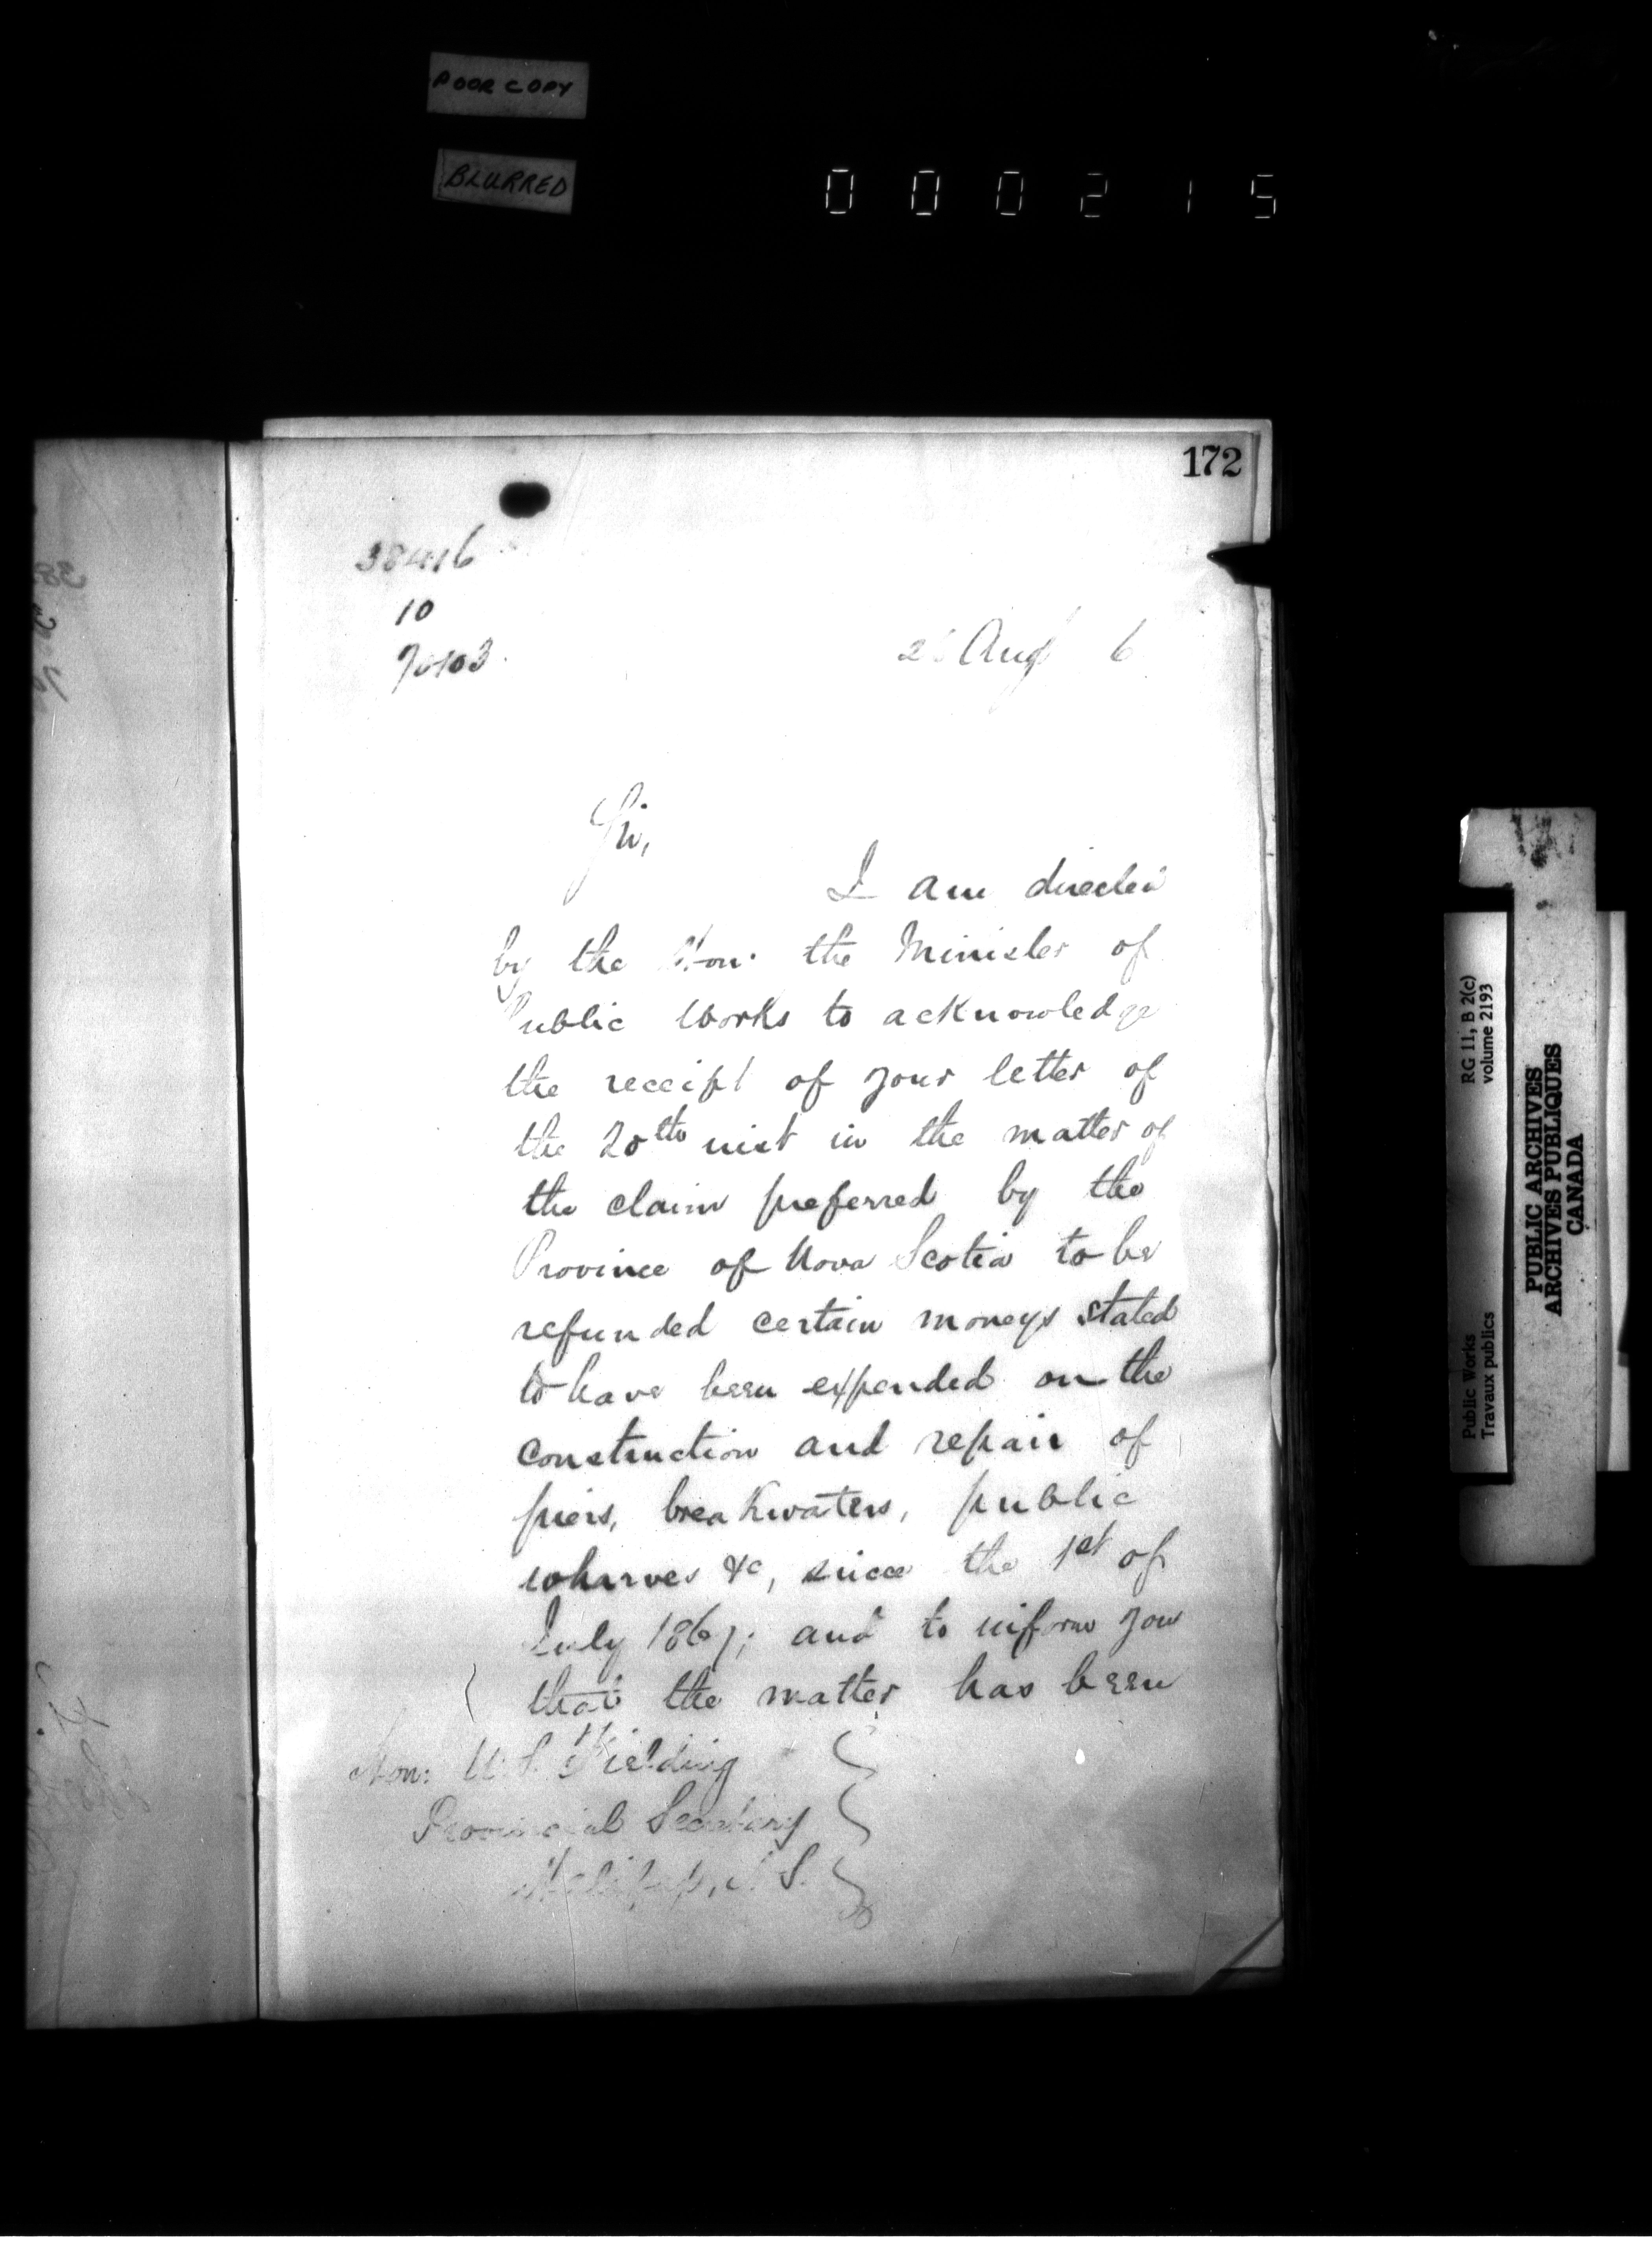 POOR COPY
BLURRED
0 0 0 2 1 5
172
38416
10
70103
Aug 6
Sir,
I am directed
by the Hon. the Minister of
Public Works to acknowledge
the receipt of your letter of
the 20th inst in the matter of
the claim preferred by the
Province of Nova Scotia to be
refunded certain moneys stated
to have been expended on the
construction and repair of
piers, breakwaters, public
wharves &c, since the 1st of
July 1867; and to inform you
that the matter has been
Hon: W. S. Fielding
Provincial Secretary
Halifax, N.S.
Public Works RG 11, B 2(c)
Travaux publics volume 2193
PUBLIC ARCHIVES
ARCHIVES PUBLIQUES
CANADA